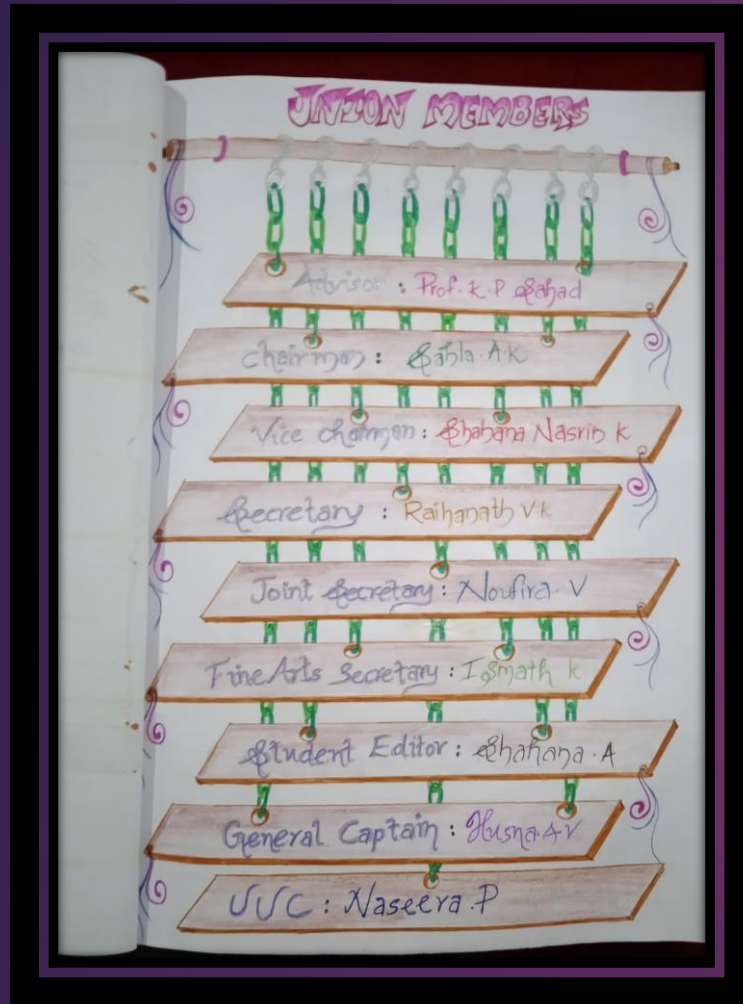 UNION MEMBERS
Advisor : Prof. K.P Sahad
Chairman : Sahla. A K
Vice Chairman : Shahana Nasrin K
Secretary : Raihanath V K
Joint Secretary : Noufira. V
Fine Arts Secretary : Ismath K
Student Editor : Shahana. A
General Captain : Husna. A V
UUC : Naseera. P